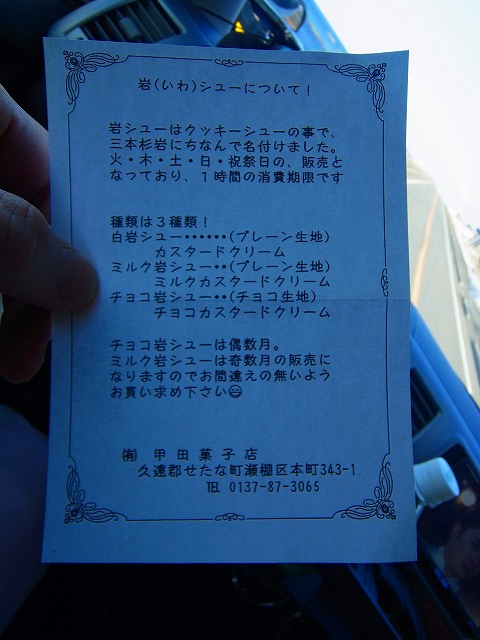 岩(いわ)シューについて！
岩シューはクッキーシューの事で、
三本杉岩にちなんで名付けました。
火・木・土・日・祝祭日の、販売と
なっており、１時間の消費期限です
種類は３種類！
白岩シュー・・・・・・(プレーン生地)
カスタードクリーム
ミルク岩シュー・・(プレーン生地)
ミルクカスタードクリーム
チョコ岩シュー・・(チョコ生地)
チョコカスタードクリーム
チョコ岩シューは偶数月。
ミルク岩シューは奇数月の販売に
なりますのでお間違えの無いよう
お買い求め下さい😄
㈲ 甲田菓子店
久遠郡せたな町瀬棚区本町343-1
℡ 0137-87-3065